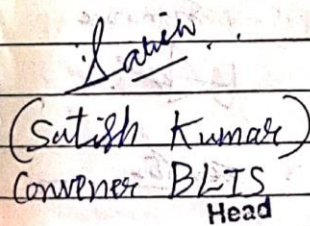 Satish
(Satish Kumar)
Convener BLIS
Head